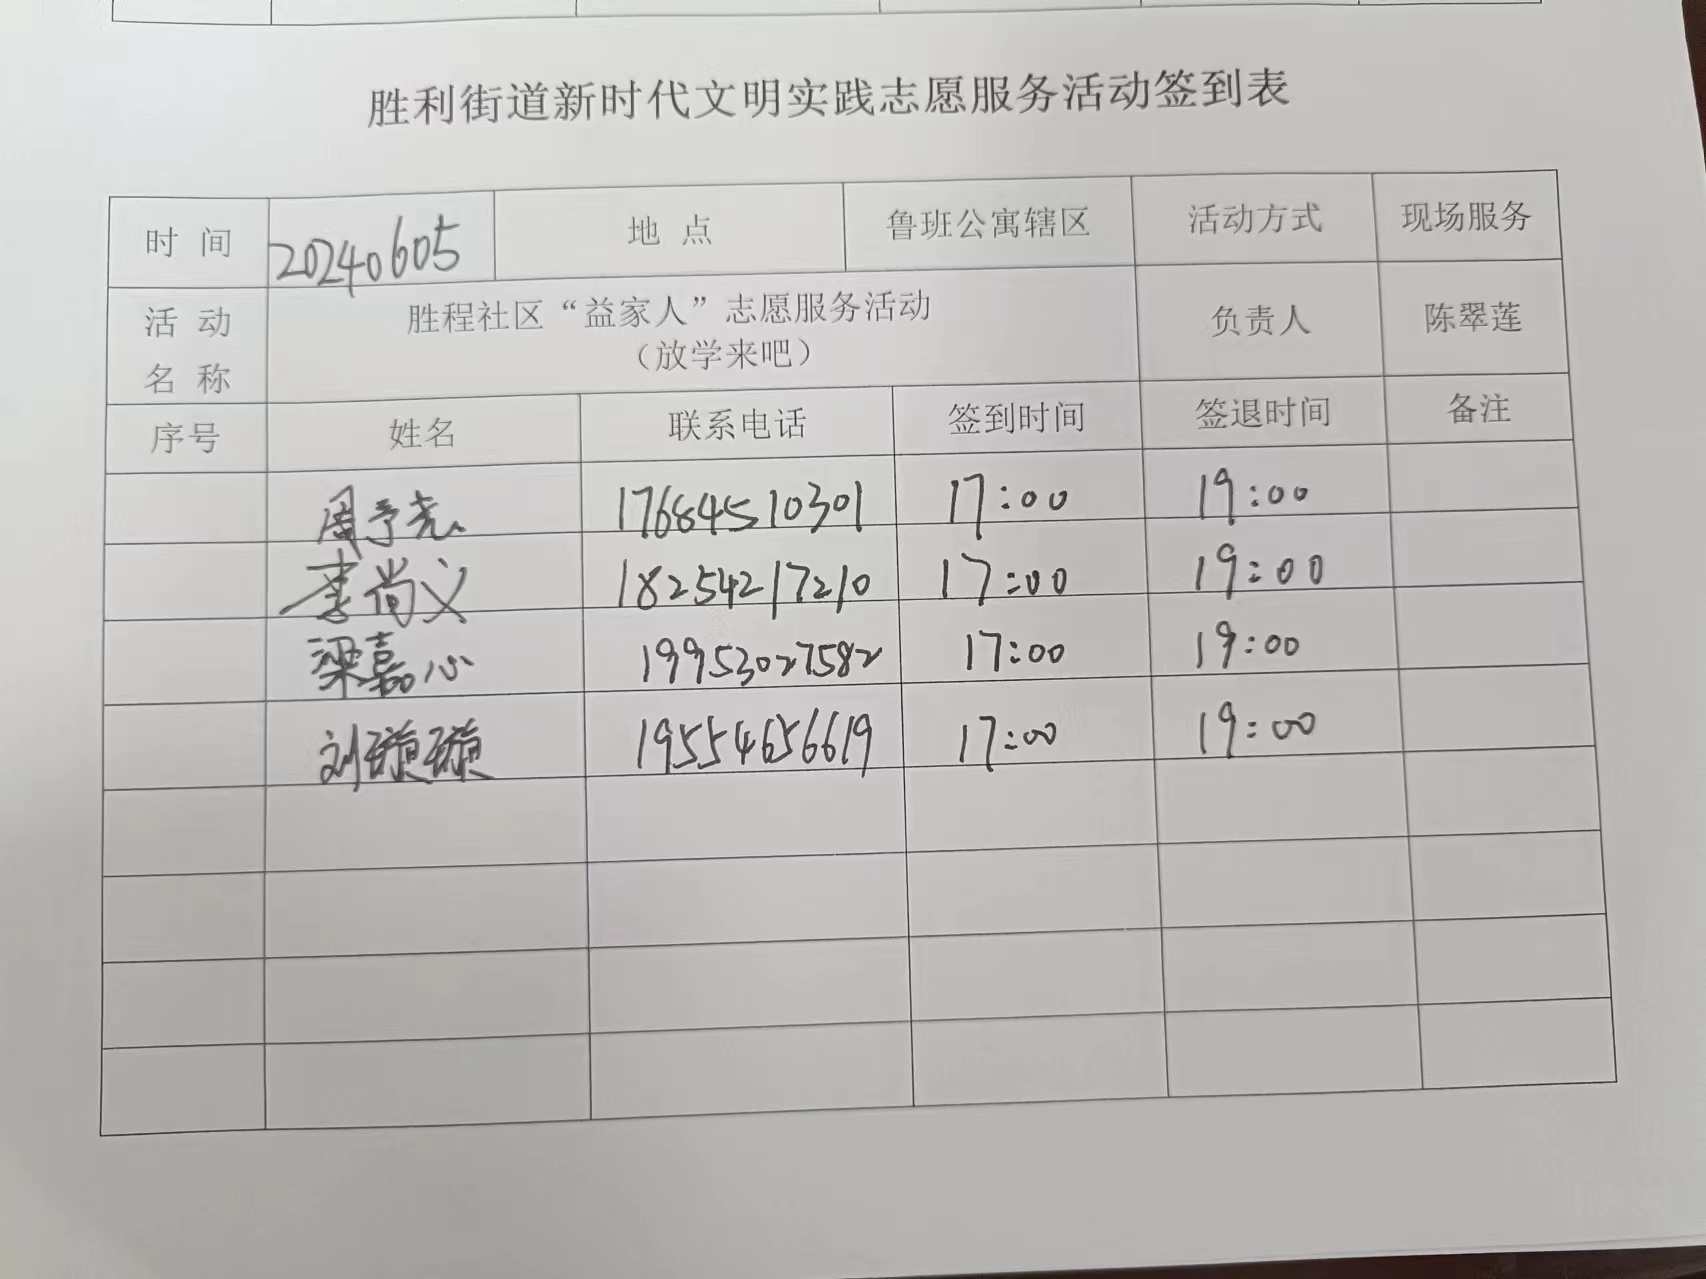 胜利街道新时代文明实践志愿服务活动签到表
时 间 20240605 地 点 鲁班公寓辖区 活动方式 现场服务
活 动 名 称 胜程社区“益家人”志愿服务活动 负责人 陈翠莲
（放学来吧）
序号 姓名 联系电话 签到时间 签退时间 备注
周予尧 17684510301 17:00 19:00
李尚义 18254217210 17:00 19:00
梁嘉心 19953027582 17:00 19:00
刘璇璇 19554656619 17:00 19:00